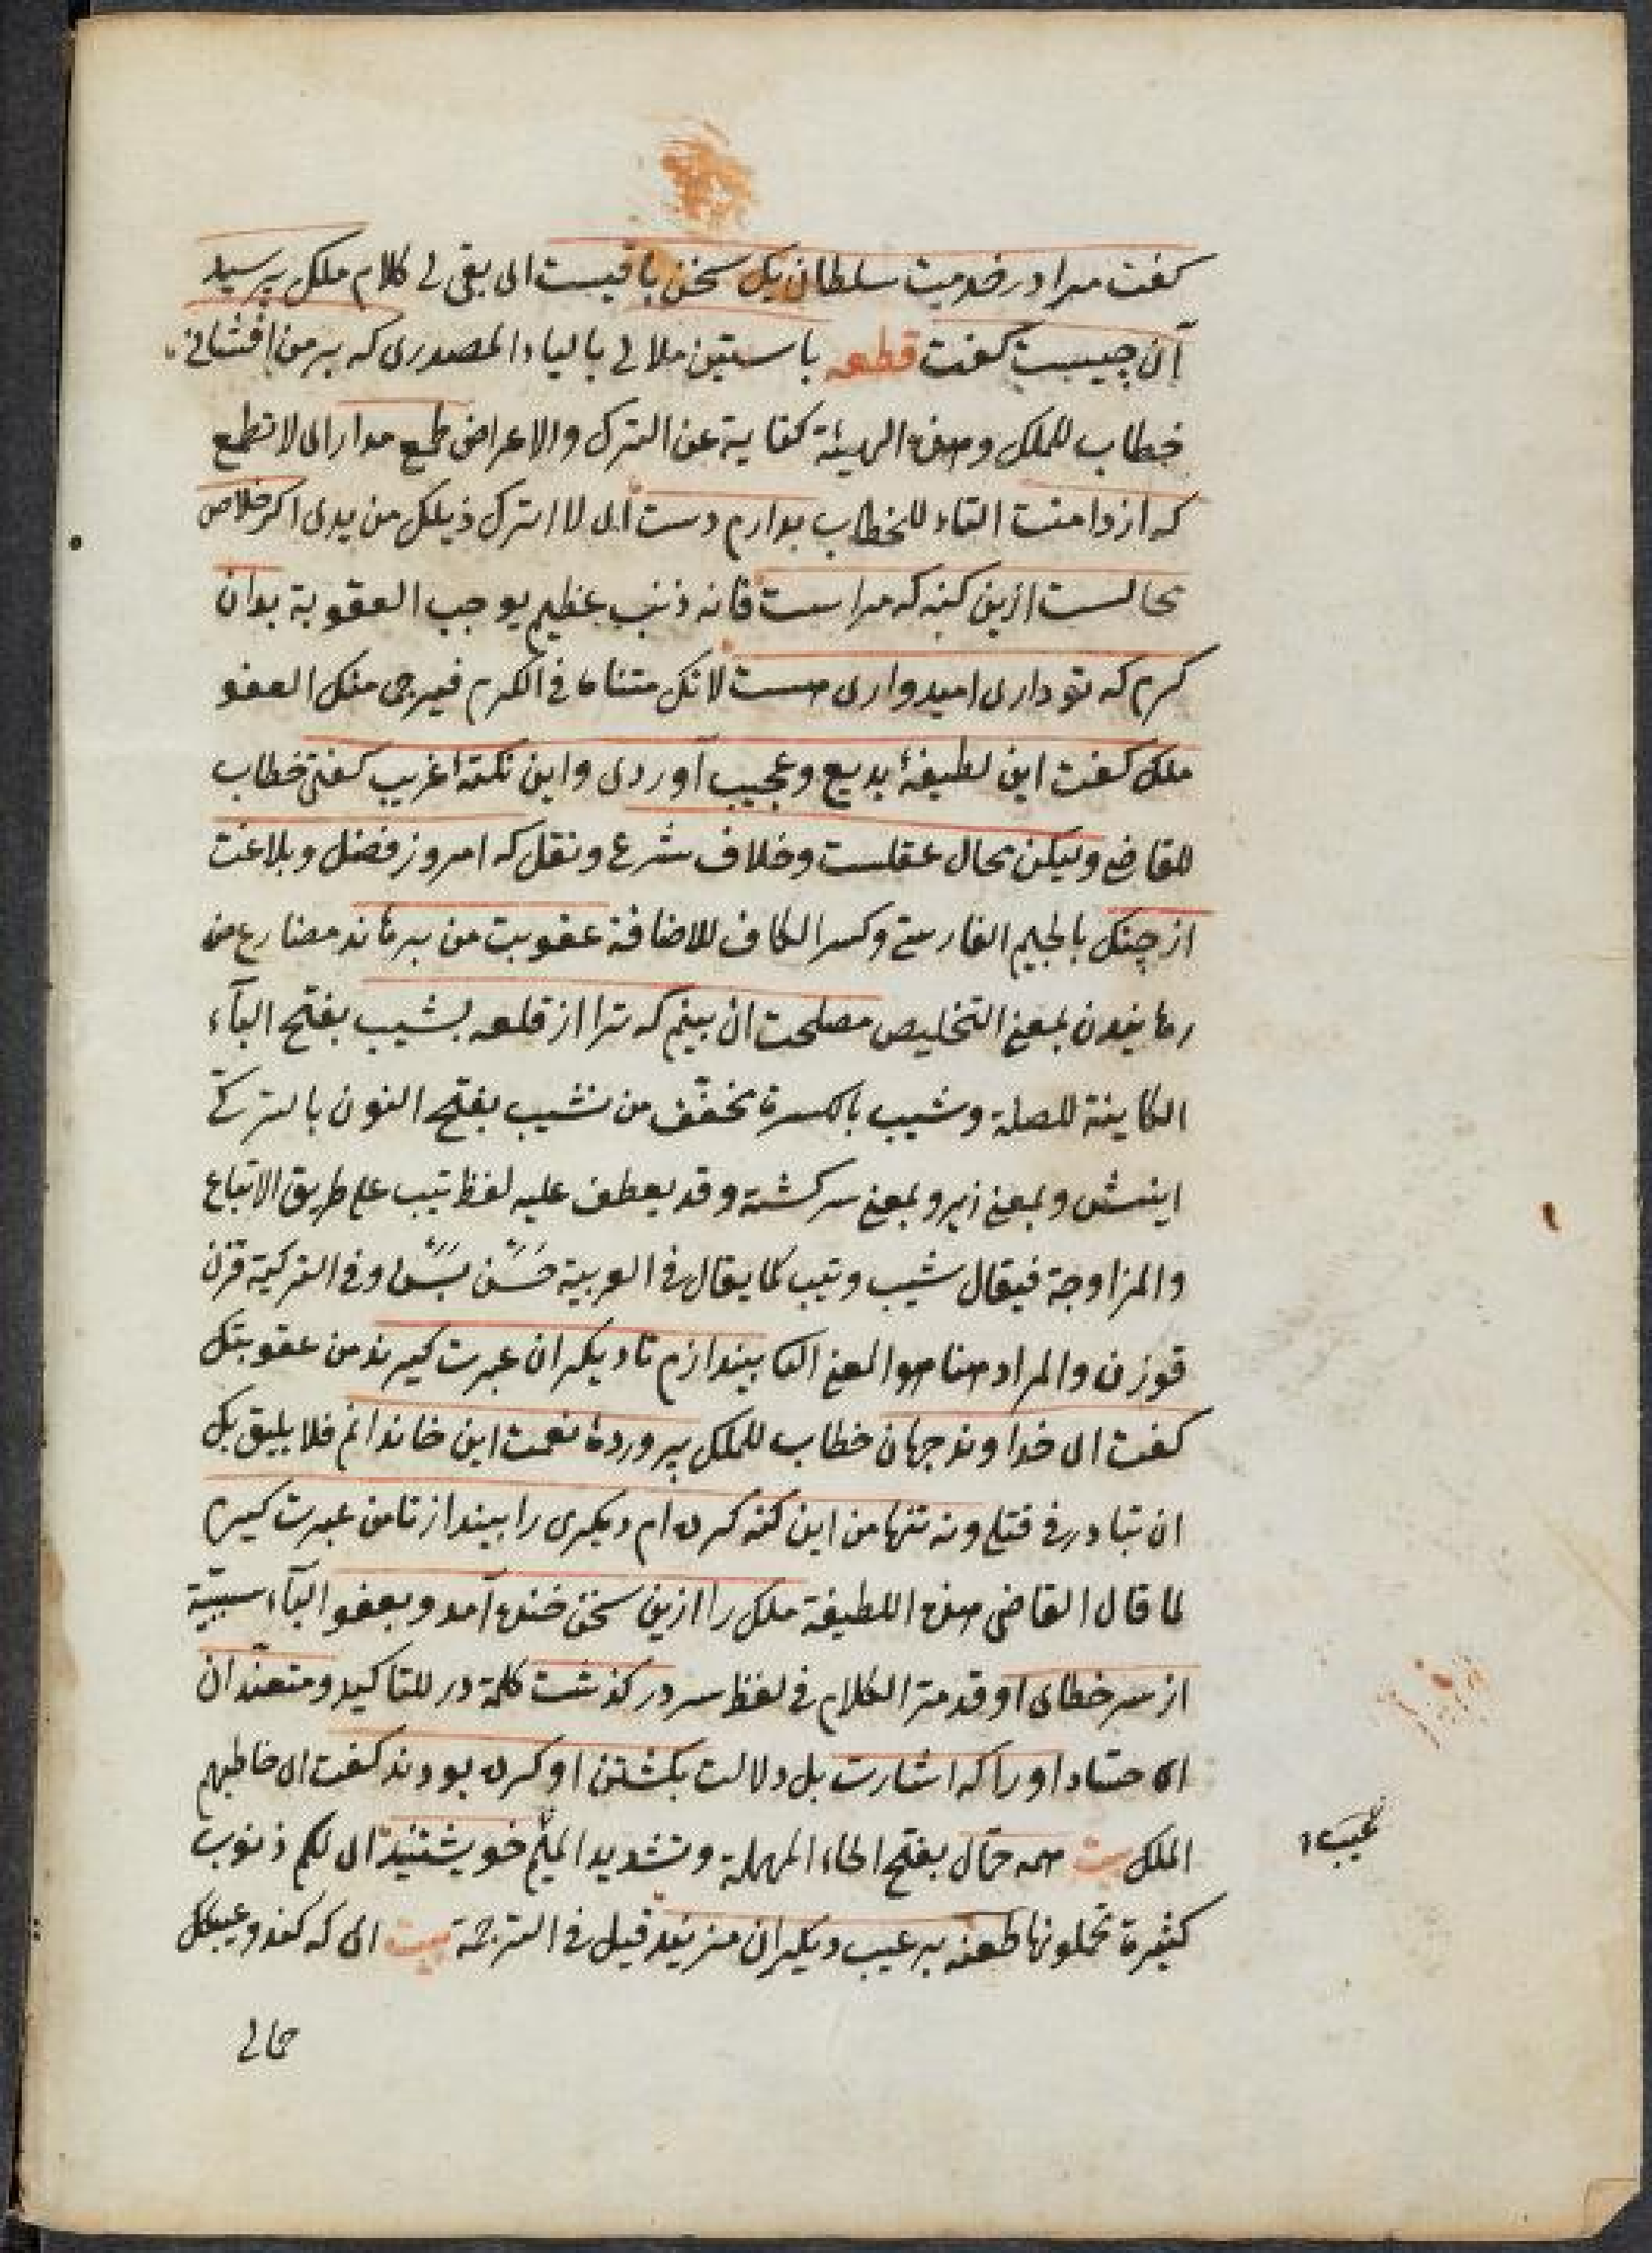 كفت مرا در خدمت سلطان يك سخن باقيست اى بقى لى كلام ملك پرسيد
آن چيست كفت قطعه باستين ملالى بالياء المصدرى كه بر من افشانى
خطاب للملك وهذه الهيئة كناية عن الترك والاعراض طمع مدار اى لا تطمع
كه از دامنت التاء للخطاب بدارم دست اى لا اترك ذيلك من يدى اكر خلاص
محالست ازين كنه كه مراست فانه ذنب عظيم يوجب العقوبة بدان
كرم كه تو دارى اميدوارى هست لانك متناه فى الكرم فيرجى منك العفو
ملك كفت اين لطيفهٔ بديع وعجيب آوردى واين نكتهٔ غريب كفتى خطاب
للقاضى وليكن محال عقلست وخلاف شرع ونقل كه امروز فضل وبلاغت
از چنك بالجيم الفارسى وكسر الكاف للاضافة عقوبت من برهاند مضارع من
رهانيدن بمعنى التخليص مصلحت آن بينم كه ترا از قلعه بشيب بفتح الباء
الكاينة للصلة وشيب بالكسرة مخفف من نشيب بفتح النون بالتركى
اينش وبمعنى زير وبمعنى سركشته وقد يعطف عليه لفظ تيب على طريق الاتباع
والمزاوجة فيقال شيب وتيب كما يقال فى العربية حسن بسن وفى التركية قزن
قوزن والمراد هنا هو المعنى بيندازم تا ديكران عبرت كيرند من عقوبتك
كفت اى خداوند جهان خطاب للملك پروردهٔ نعمت اين خاندانم فلا يليق بك
ان تبادر فى قتلى ونه تنها من اين كنه كرده ام ديكرى را بينداز تا من عبرت كيرم
لما قال القاضى هذه اللطيفة ملك را ازين سخن خنده آمد وبعفو الباء سببية
از سر خطاى او قد مر الكلام فى لفظ سر در كذشت كلمة در للتاكيد ومتعندان
اى حساد او را كه اشارت بل دلالت بكشتن او كرده بودند كفت اى خاطبهم
الملك بيت همه حمال بفتح الحاء المهملة وتشديد الميم خويشتنيد اى لكم ذنوب
كثيرة تحملونها طعنه بر عيب ديكران مزنيد قيل فى الترجمة بيت اى كه كندو عيبكك
عيب
حمالى